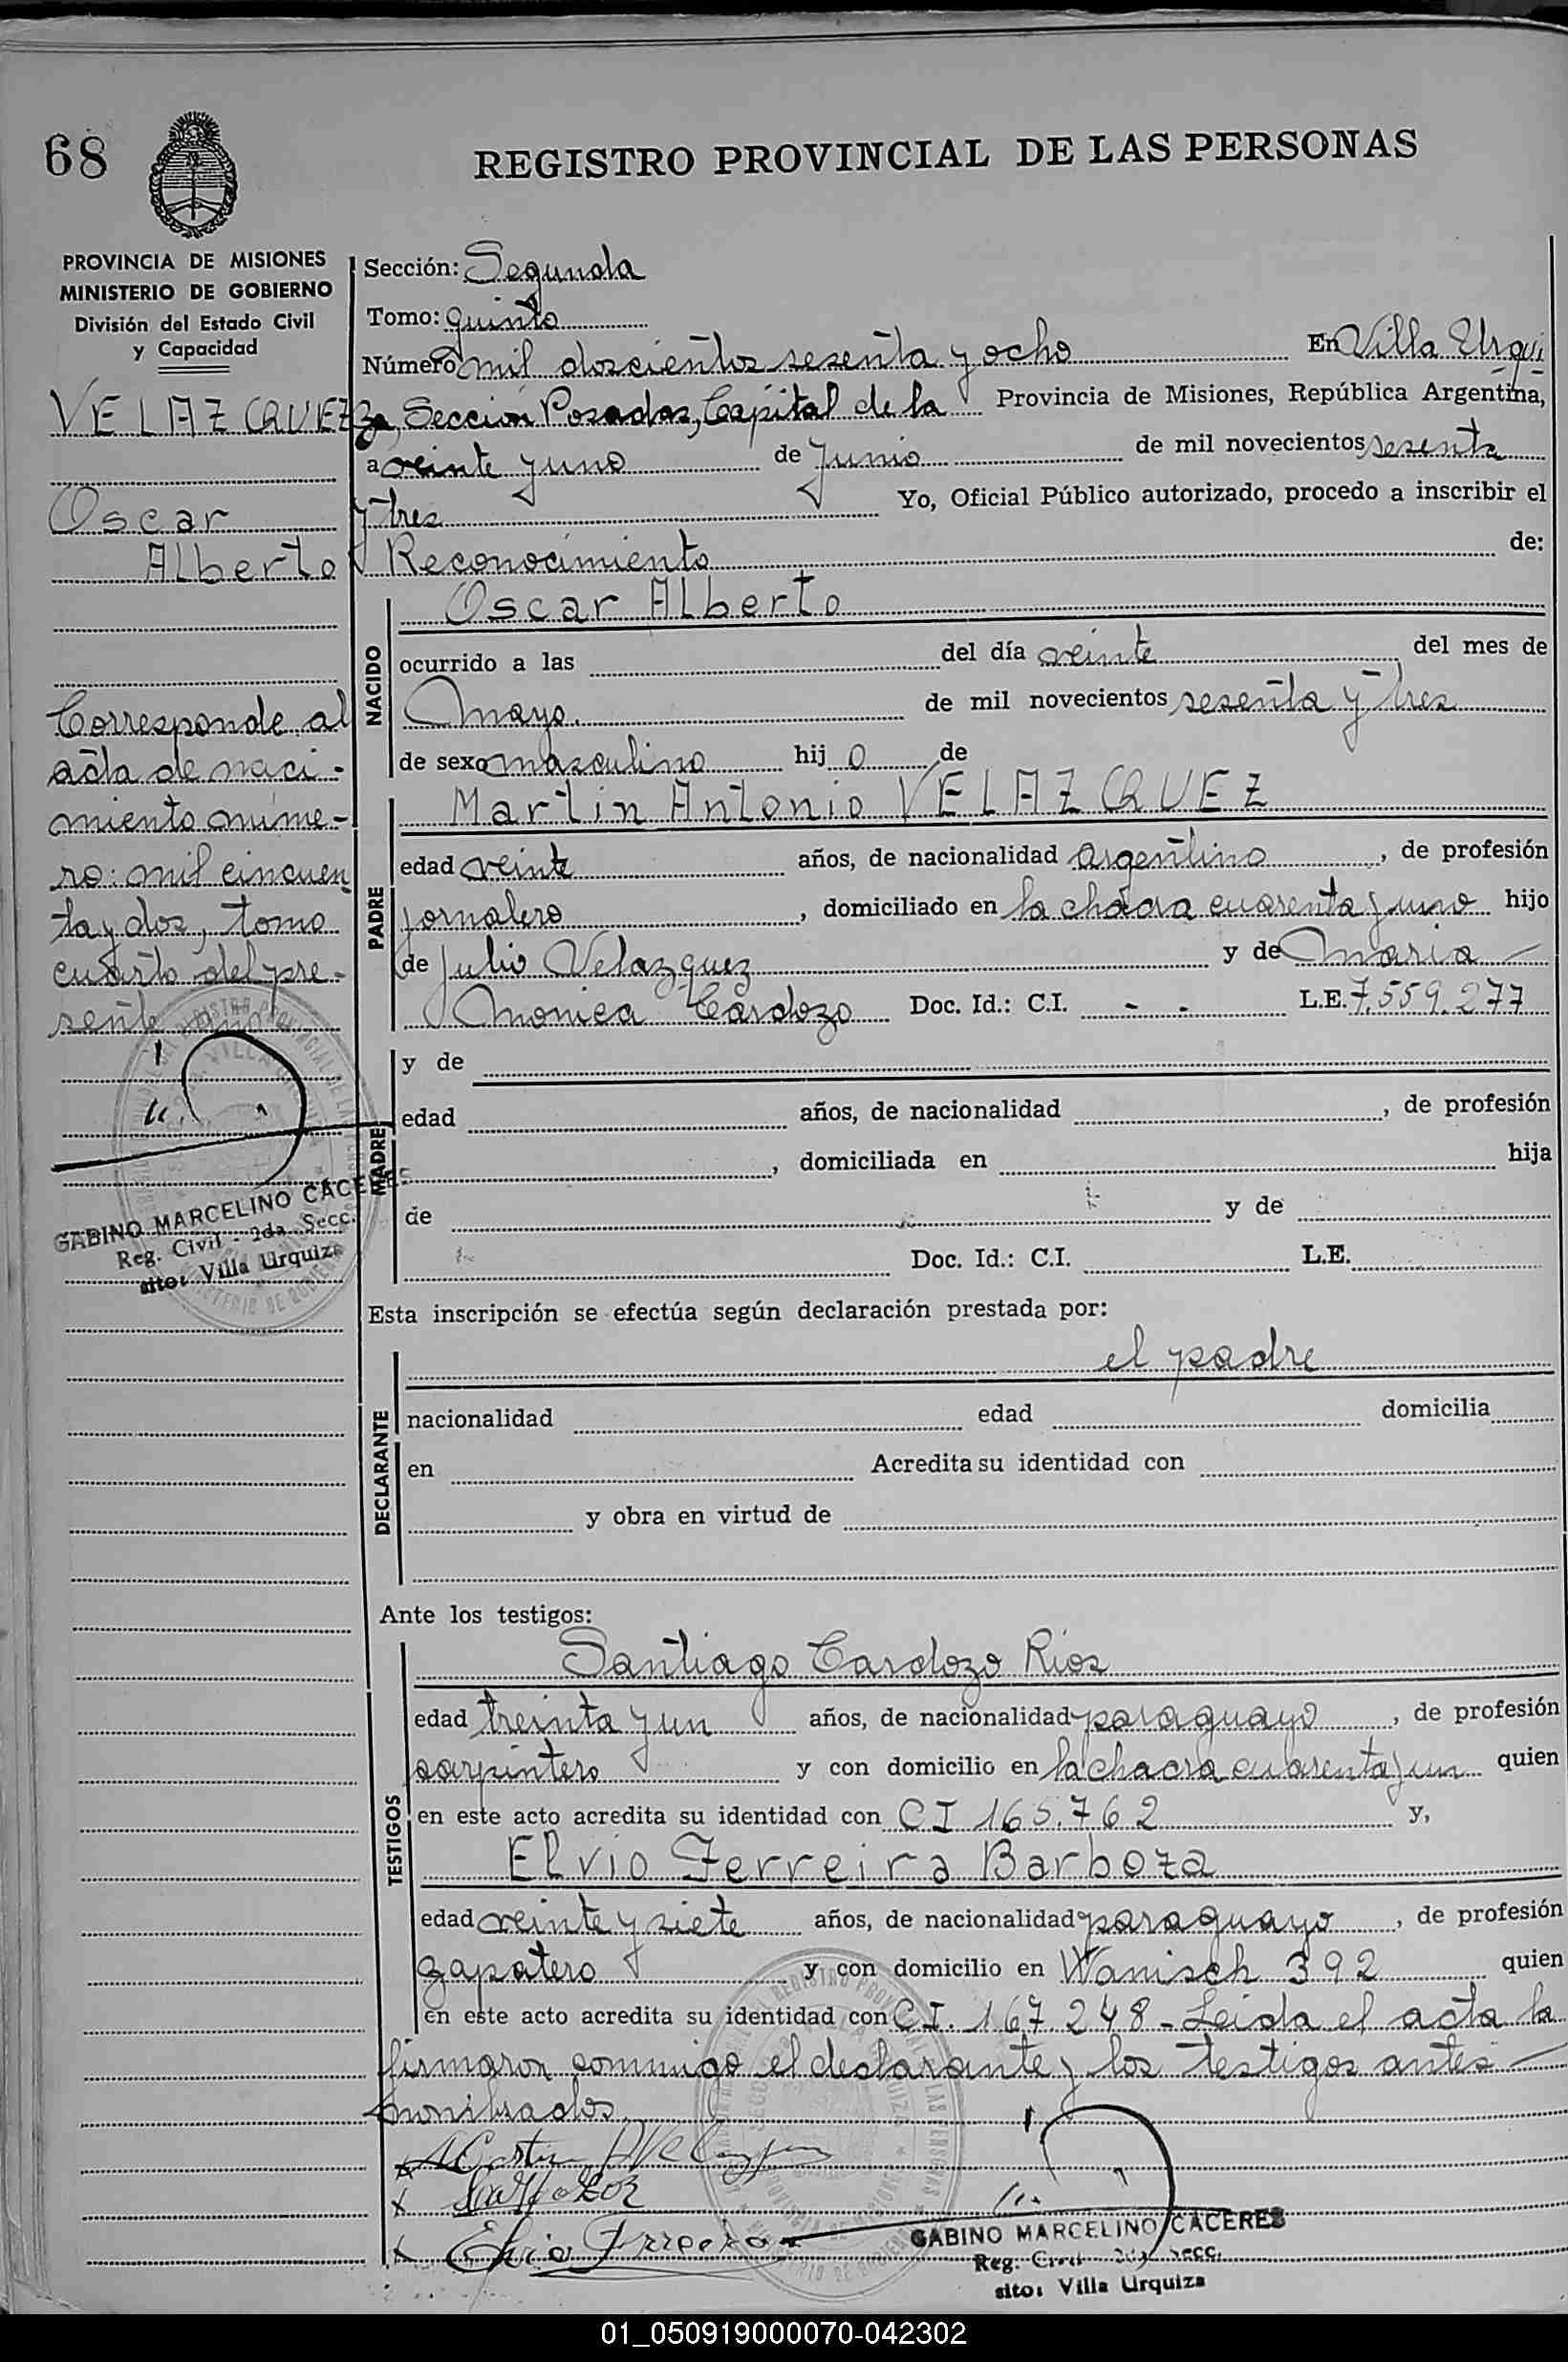 68
REGISTRO PROVINCIAL DE LAS PERSONAS
PROVINCIA DE MISIONES
MINISTERIO DE GOBIERNO
División del Estado Civil
y Capacidad
VELAZCQUEZ
Oscar
Alberto
Corresponde al
acta de naci-
miento núme-
ro: mil cincuen
ta y dos, tomo
cuarto del pre-
sente
GABINO MARCELINO CACERES
Reg. Civil - 2da. Secc.
sito: Villa Urquiza
Sección: Segunda
Tomo: quinto
Número mil doscientos sesenta y ocho En Villa Urqui
za, Sección Posadas, Capital de la Provincia de Misiones, República Argentina,
a veinte y uno de Junio de mil novecientos sesenta
y tres Yo, Oficial Público autorizado, procedo a inscribir el
Reconocimiento de:
NACIDO
Oscar Alberto
ocurrido a las del día veinte del mes de
mayo. de mil novecientos sesenta y tres
de sexo masculino hij o de
PADRE
Martin Antonio VELAZCQUEZ
edad veinte años, de nacionalidad argentino, de profesión
jornalero, domiciliado en la chacra cuarenta y uno hijo
de Julio Velazquez y de Maria
Monica Cardozo Doc. Id.: C.I. - - L.E. 7.559.277
MADRE
y de
edad años, de nacionalidad , de profesión
, domiciliada en hija
de y de
Doc. Id.: C.I. L.E.
Esta inscripción se efectúa según declaración prestada por:
DECLARANTE
el padre
nacionalidad edad domicilia
en Acredita su identidad con
y obra en virtud de
Ante los testigos:
TESTIGOS
Santiago Cardozo Rios
edad treinta y un años, de nacionalidad paraguayo, de profesión
carpintero y con domicilio en la chacra cuarenta y un quien
en este acto acredita su identidad con CI 165.762 y,
Elvio Ferreira Barboza
edad veinte y siete años, de nacionalidad paraguayo, de profesión
zapatero y con domicilio en Wanisch 392 quien
en este acto acredita su identidad con C.I. 167.248 - Leida el acta la
firmaron conmigo el declarante y los testigos antes
nombrados.
Elvio Ferreira
GABINO MARCELINO CACERES
Reg. Civil 2da Secc.
sito: Villa Urquiza
01_050919000070-042302